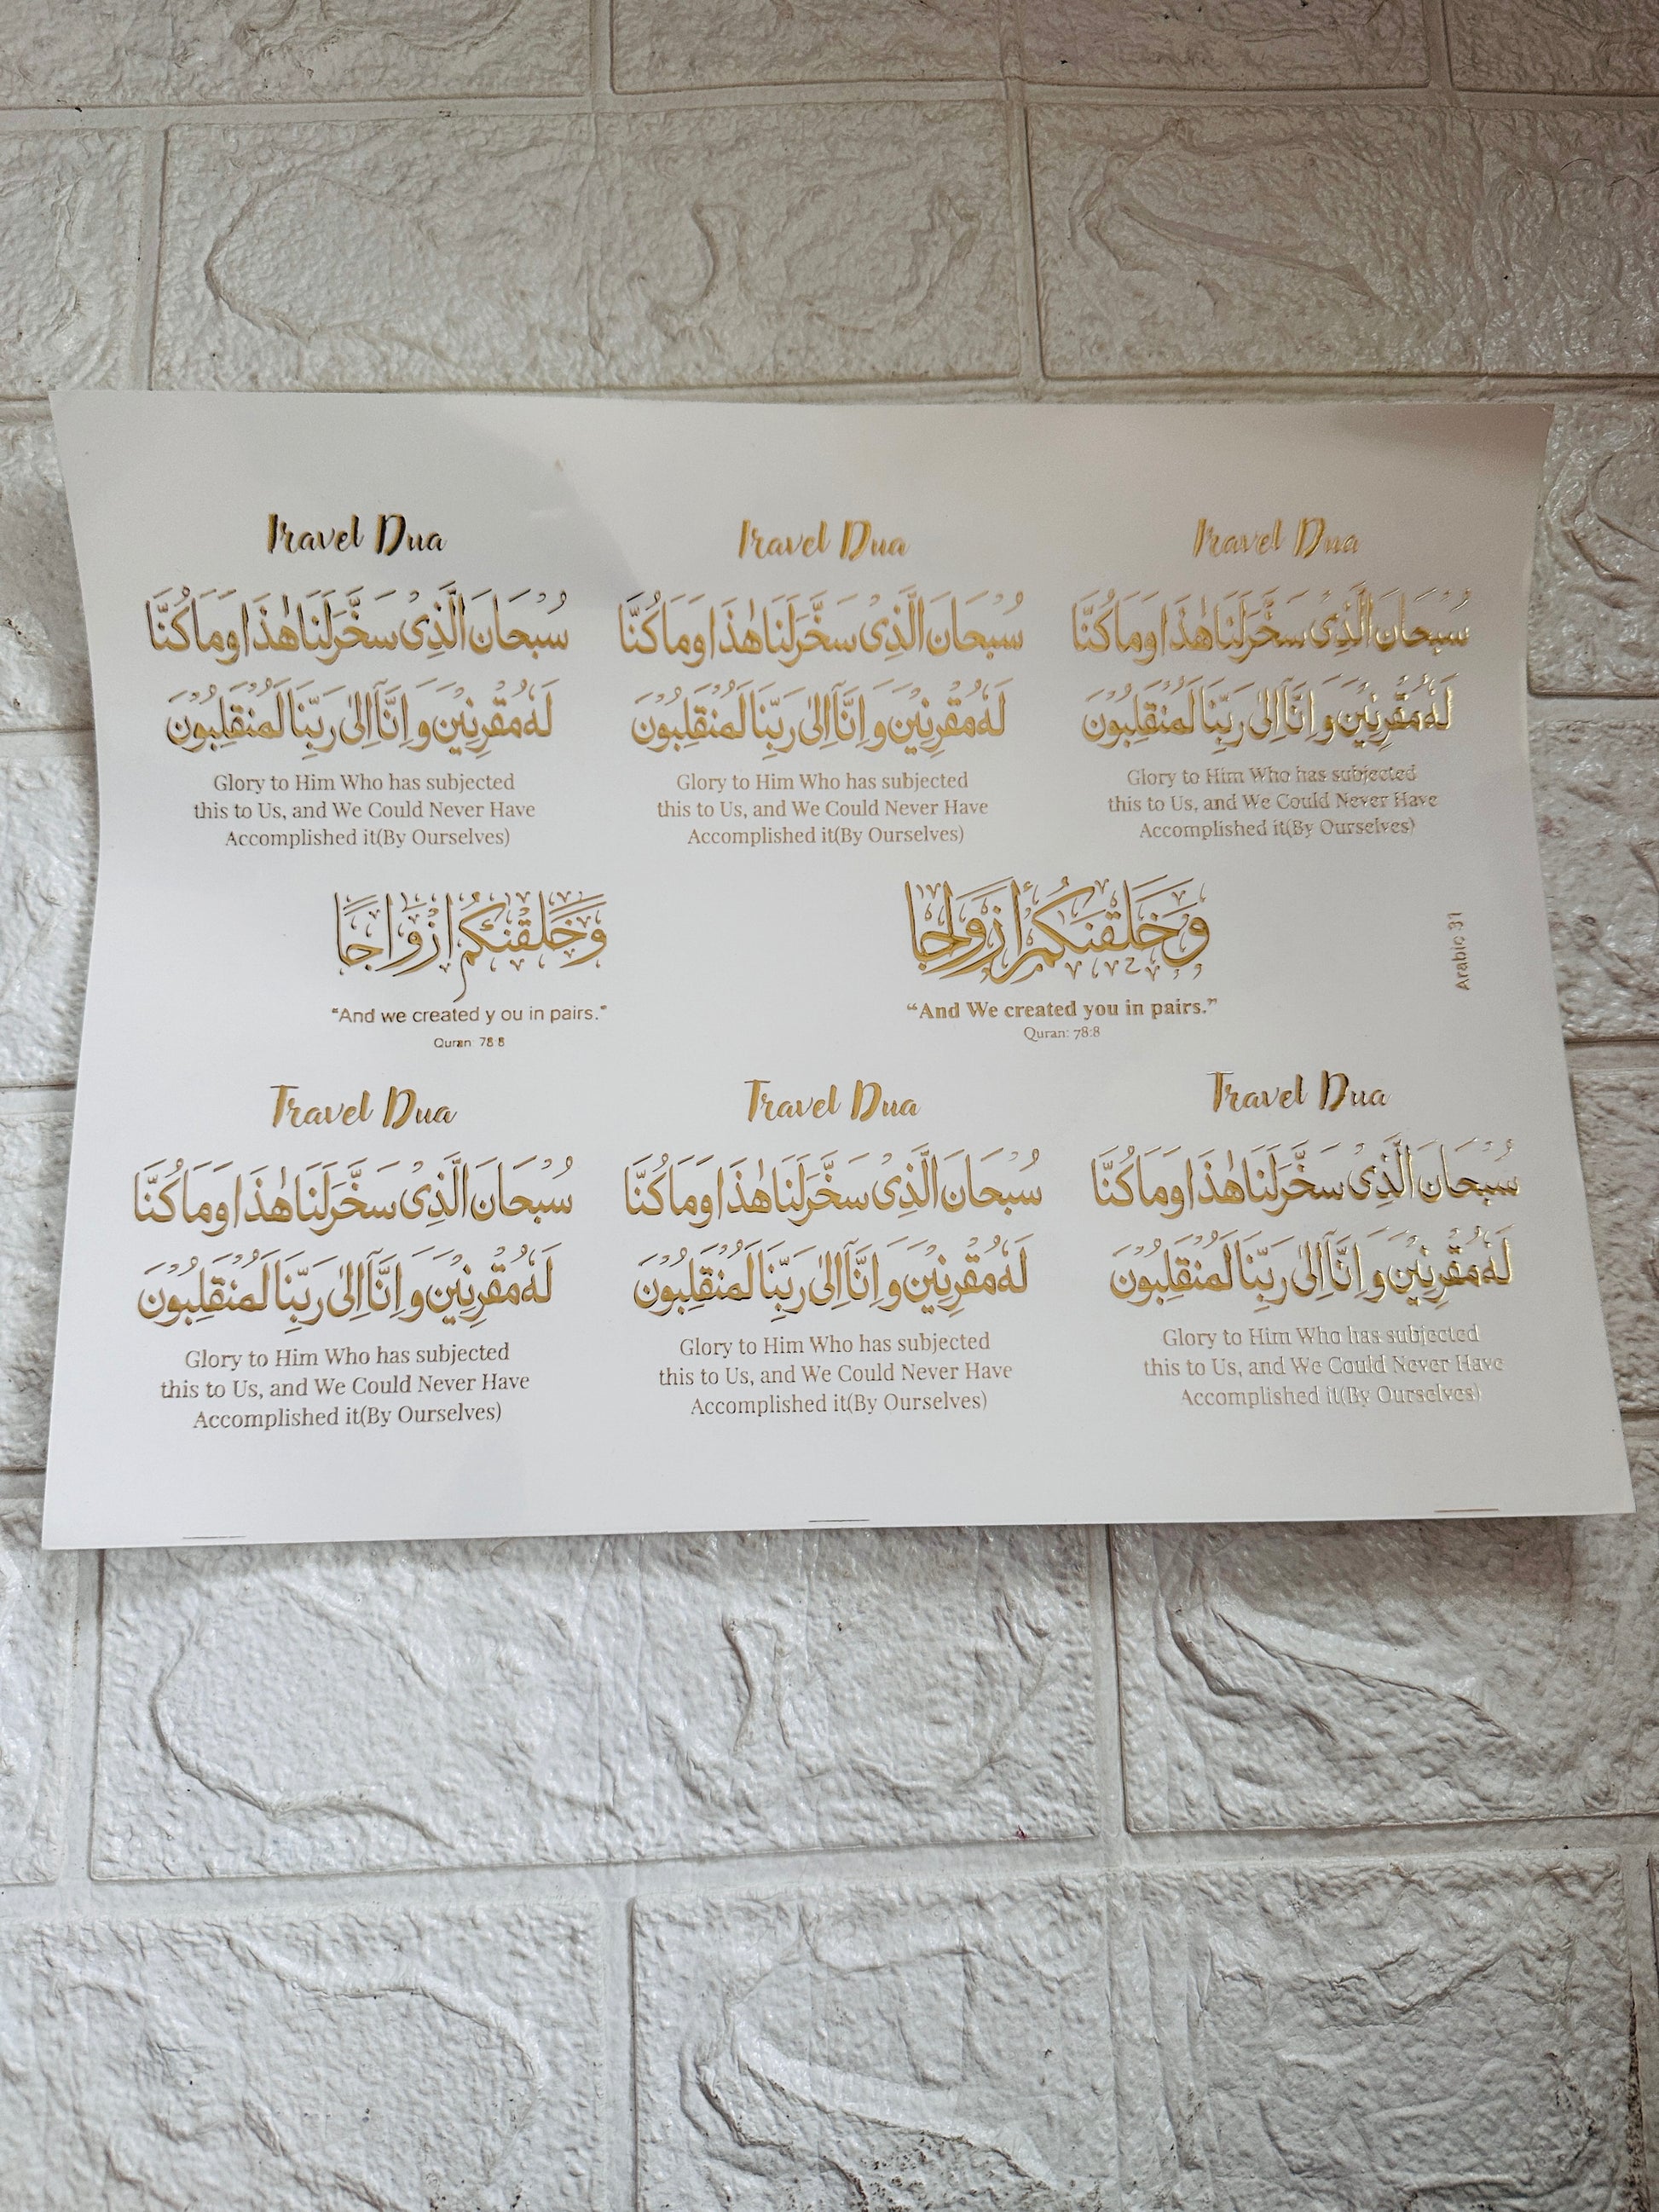 Travel Dua
سُبْحَانَ الَّذِىْ سَخَّرَ لَنَا هٰذَا وَمَا كُنَّا
لَهٗ مُقْرِنِيْنَ وَ اِنَّآ اِلٰى رَبِّنَا لَمُنْقَلِبُوْنَ
Glory to Him Who has subjected
this to Us, and We Could Never Have
Accomplished it(By Ourselves)
Travel Dua
سُبْحَانَ الَّذِىْ سَخَّرَ لَنَا هٰذَا وَمَا كُنَّا
لَهٗ مُقْرِنِيْنَ وَ اِنَّآ اِلٰى رَبِّنَا لَمُنْقَلِبُوْنَ
Glory to Him Who has subjected
this to Us, and We Could Never Have
Accomplished it(By Ourselves)
Travel Dua
سُبْحَانَ الَّذِىْ سَخَّرَ لَنَا هٰذَا وَمَا كُنَّا
لَهٗ مُقْرِنِيْنَ وَ اِنَّآ اِلٰى رَبِّنَا لَمُنْقَلِبُوْنَ
Glory to Him Who has subjected
this to Us, and We Could Never Have
Accomplished it(By Ourselves)
وَخَلَقْنَكُمْ ازْوَاجًا
"And we created y ou in pairs."
Quran: 78:8
وَخَلَقْنَكُمْ أزْوَاجًا
“And We created you in pairs.”
Quran: 78:8
Arabic 31
Travel Dua
سُبْحَانَ الَّذِىْ سَخَّرَ لَنَا هٰذَا وَمَا كُنَّا
لَهٗ مُقْرِنِيْنَ وَ اِنَّآ اِلٰى رَبِّنَا لَمُنْقَلِبُوْنَ
Glory to Him Who has subjected
this to Us, and We Could Never Have
Accomplished it(By Ourselves)
Travel Dua
سُبْحَانَ الَّذِىْ سَخَّرَ لَنَا هٰذَا وَمَا كُنَّا
لَهٗ مُقْرِنِيْنَ وَ اِنَّآ اِلٰى رَبِّنَا لَمُنْقَلِبُوْنَ
Glory to Him Who has subjected
this to Us, and We Could Never Have
Accomplished it(By Ourselves)
Travel Dua
سُبْحَانَ الَّذِىْ سَخَّرَ لَنَا هٰذَا وَمَا كُنَّا
لَهٗ مُقْرِنِيْنَ وَ اِنَّآ اِلٰى رَبِّنَا لَمُنْقَلِبُوْنَ
Glory to Him Who has subjected
this to Us, and We Could Never Have
Accomplished it(By Ourselves)